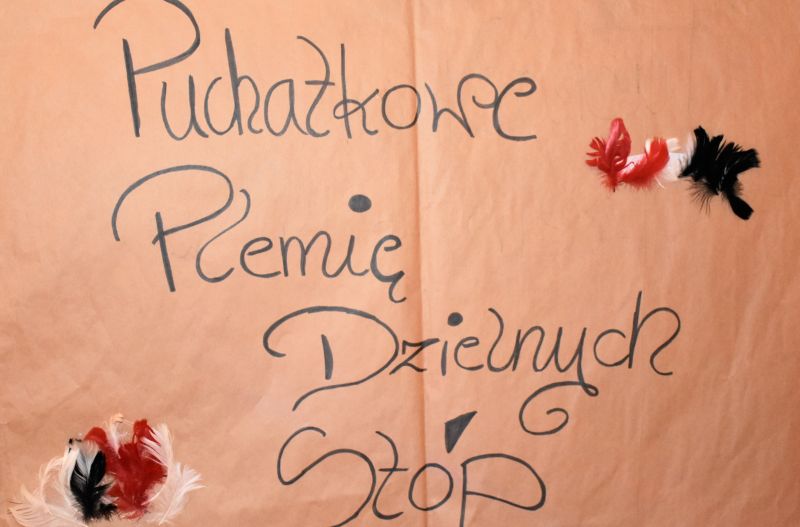 Puchatkowe
Plemię
Dzielnych
Stóp